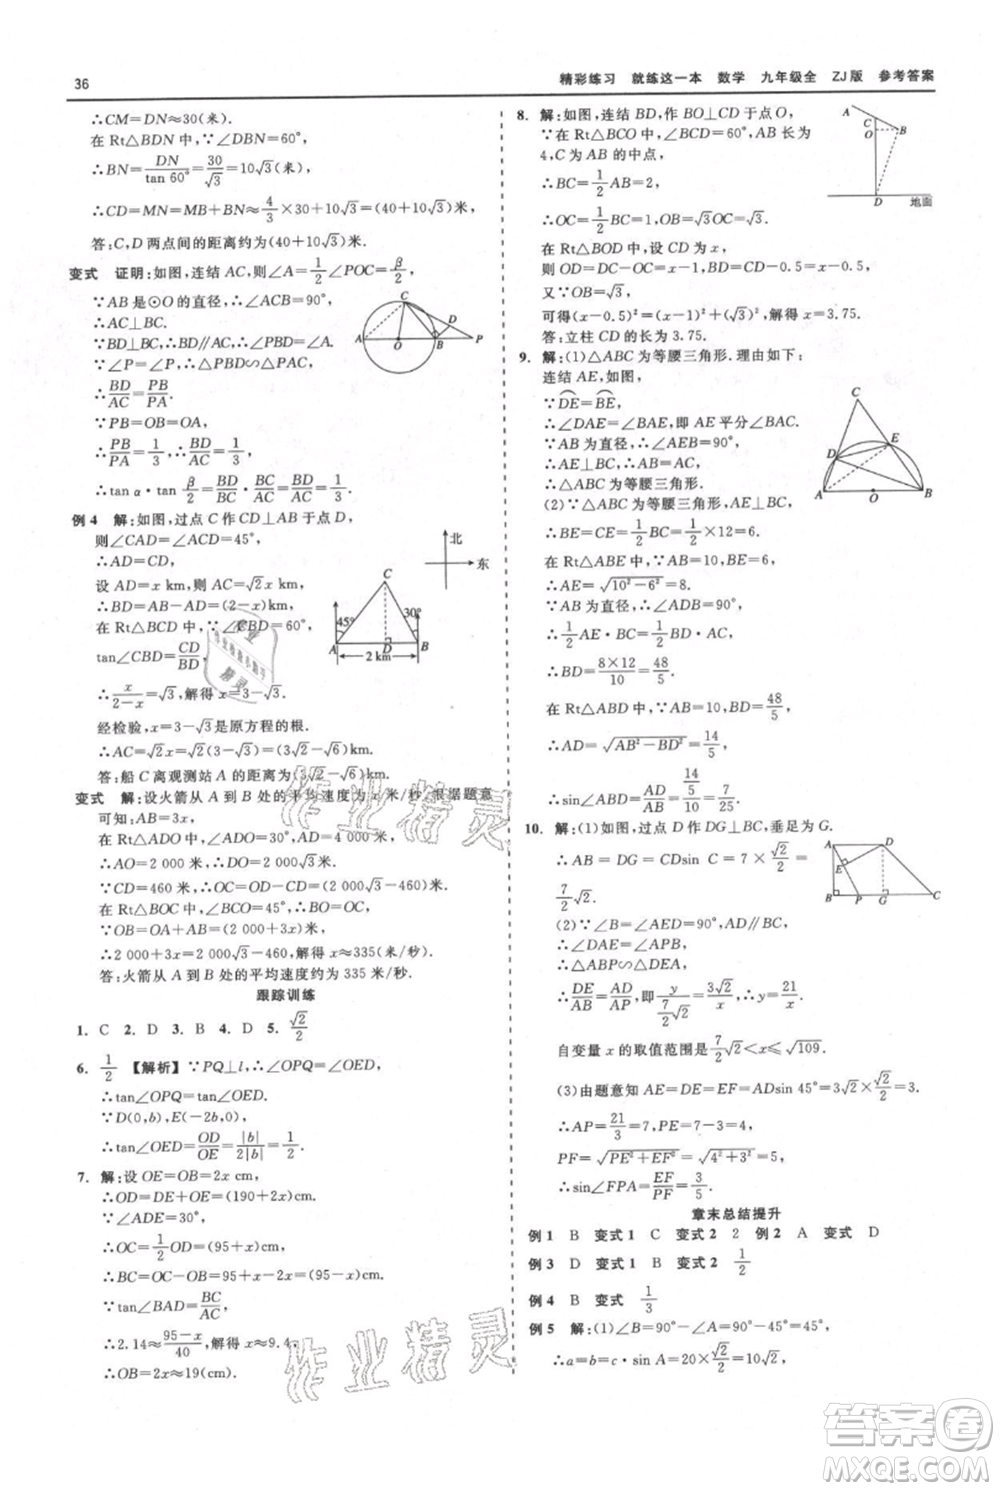 36
精彩练习 就练这一本 数学 九年级全 ZJ版 参考答案
∴CM=DN≈30(米).
在 Rt△BDN 中，∵∠DBN=60°，
∴BN=DN/tan 60°=30/√3=10√3(米).
∴CD=MN=MB+BN≈4/3×30+10√3=(40+10√3)米.
答:C,D 两点间的距离约为(40+10√3)米.
变式 证明:如图,连结 AC,则∠A=1/2∠POC=β/2，
∵AB 是⊙O 的直径,∴∠ACB=90°，
∴AC⊥BC.
∵BD⊥BC,∴BD∥AC，
∵∠P=∠P,∴△PBD∽△PAC，
∴BD/AC=PB/PA.
∵PB=OB=OA，
∴PB/PA=1/3,∴BD/AC=1/3，
∴tan α·tan β/2=BD/BC·BC/AC=BD/AC=1/3.
例 4 解:如图,过点 C 作 CD⊥AB 于点 D，
则∠CAD=∠ACD=45°，
∴AD=CD，
设 AD=x km,则 AC=√2x km，
∴BD=AB-AD=(2-x)km，
在 Rt△BCD 中,∵∠CBD=60°，
tan∠CBD=CD/BD
∴x/(2-x)=√3,解得 x=3-√3.
经检验,x=3-√3是原方程的根.
∴AC=√2x=√2(3-√3)=(3√2-√6)km.
答:船 C 离观测站 A 的距离为(3√2-√6)km.
变式 解:设火箭从 A 到 B 处的平均速度为 x 米/秒,根据题意
可知:AB=3x，
在 Rt△ADO 中,∵∠ADO=30°,AD=4 000，
∴AO=2 000 米,∴DO=2 000√3米，
∵CD=460米,∴OC=OD-CD=(2 000√3-460)米.
在 Rt△BOC 中,∵∠BCO=45°,∴BO=OC，
∵OB=OA+AB=(2 000+3x)米，
∴2 000+3x=2 000√3-460,解得 x≈335(米/秒).
答:火箭从 A 到 B 处的平均速度约为 335 米/秒.
跟踪训练
1. C 2. D 3. B 4. D 5. √2/2
6. 1/2 【解析】∵PQ⊥l,∴∠OPQ=∠OED，
∴tan∠OPQ=tan∠OED.
∵D(0,b),E(-2b,0)，
∴tan∠OED=OD/OE=|b|/2|b|=1/2.
7. 解:设 OE=OB=2x cm，
∴OD=DE+OE=(190+2x)cm，
∵∠ADE=30°，
∴OC=1/2OD=(95+x)cm，
∴BC=OC-OB=95+x-2x=(95-x)cm，
∵tan∠BAD=BC/AC，
∴2.14≈(95-x)/40,解得 x≈9.4，
∴OB=2x≈19(cm).
8. 解:如图,连结 BD,作 BO⊥CD 于点 O，
∵在 Rt△BCO 中,∠BCO=60°,AB 长为
4,C 为 AB 的中点，
∴BC=1/2AB=2，
∴OC=1/2BC=1,OB=√3.
在 Rt△BOD 中,设 CD 为 x，
则 OD=DC-OC=x-1,BD=x-0.5，
又∵OB=√3，
可得(x-0.5)²=(x-1)²+(√3)²,解得 x=3.75.
答:立柱 CD 的长为 3.75.
A C B O D 地面
9. 解:(1)△ABC 为等腰三角形.理由如下:
连结 AE,如图，
∵DE=BE，
∴∠DAE=∠BAE,即 AE 平分∠BAC.
∵AB 为直径,∴∠AEB=90°，
∴AE⊥BC,∴△ABC 为等腰三角形.
(2)∵△ABC 为等腰三角形,AE⊥BC，
∴BE=CE=1/2BC=1/2×12=6，
在 Rt△ABE 中,∵AB=10,BE=6，
∴AE=√(10²-6²)=8.
∵1/2AE·BC=1/2BD·AC，
∴BD=8×12/10=48/5，
在 Rt△ABD 中,∵AB=10,BD=48/5，
∴AD=√(AB²-BD²)=14/5，
∴sin∠ABD=AD/AB=(14/5)/10=7/25.
10. 解:(1)如图,过点 D 作 DG⊥BC,垂足为 G.
∴AB=DG=CDsin C=7×√2/2=
7/2√2.
(2)∵∠B=∠AED=90°,AD∥BC，
∴∠DAE=∠APB，
∴△ABP∽△DEA，
∴DE/AB=AD/AP,即 y/(7/2√2)=3√2/x,∴y=21/x.
自变量 x 的取值范围是7/2√2<x≤√109.
(3)由题意知 AE=DE=EF=ADsin 45°=3√2×√2/2=3.
∴AP=21/3=7,PE=7-3=4，
PF=√(PE²+EF²)=√(4²+3²)=5，
∴sin∠FPA=EF/PF=3/5.
章末总结提升
例 1 B 变式 1 C 变式 2 2 例 2 A 变式 D
例 3 D 变式 1 C 变式 2 1/2
例 4 B 变式 1/3
例 5 解:(1)∠B=90°-∠A=90°-45°=45°，
∴a=b=c·sin A=20×√2/2=10√2.
作业精灵
作业精灵
答案卷
MXQE.COM